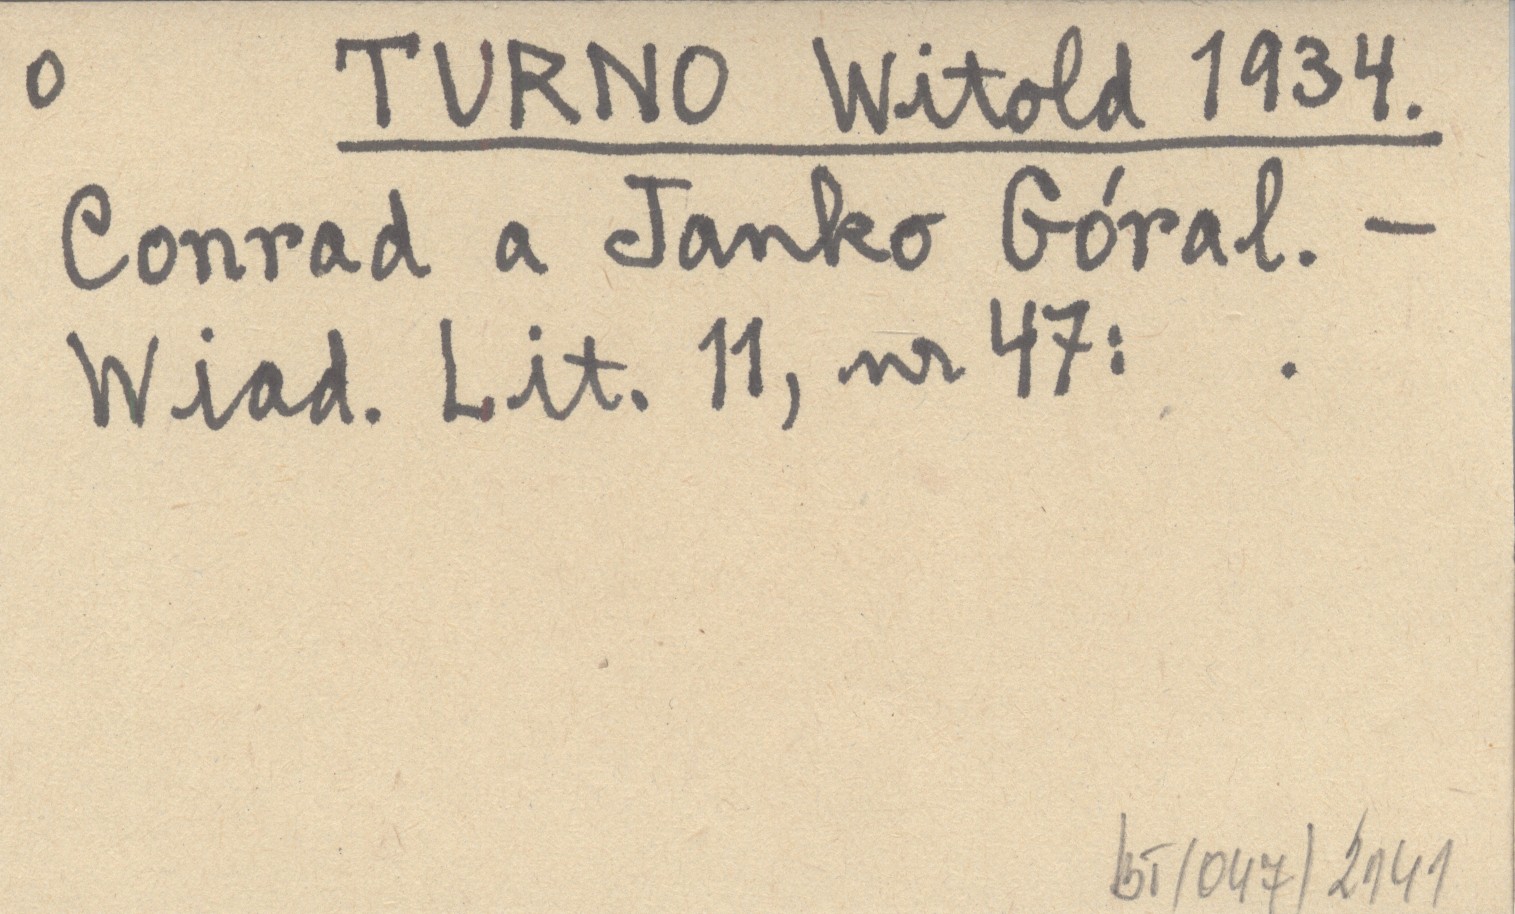 o TURNO Witold 1934.
Conrad a Janko Góral. –
Wiad. Lit. 11, nr 47: .
bī/047/2141